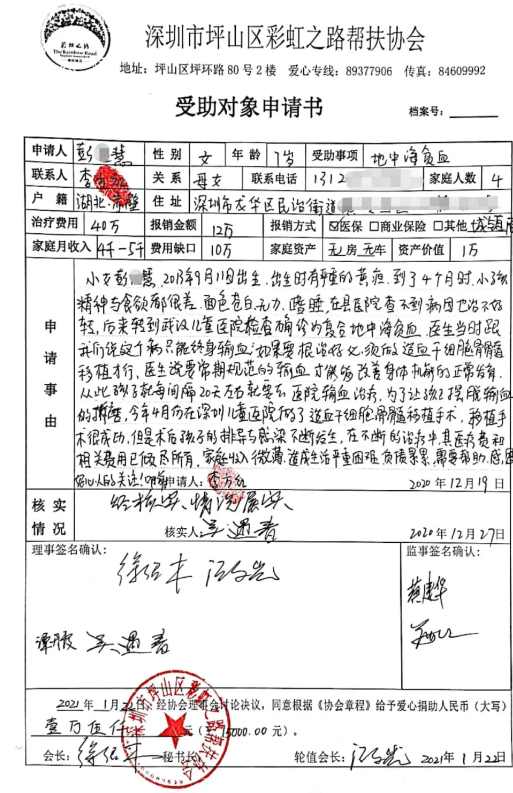 彩虹之路
The Rainbow Road
深圳市坪山区彩虹之路帮扶协会
地址：坪山区坪环路80号2楼 爱心专线：89377906 传真：84609992
受助对象申请书
档案号：
申请人 彭 慧 性别 女 年龄 7岁 受助事项 地中海贫血
联系人 李 关系 母女 联系电话 1312 家庭人数 4
户籍 湖北 住址 深圳市龙华区民治街道
治疗费用 40万 报销金额 12万 报销方式 ☑医保 □商业保险 □其他
家庭月收入 4千-5千 费用缺口 10万 家庭资产 无房无车 资产价值 1万
申请事由
小女彭 慧，2013年9月11日出生，出生时有严重的黄疸，到了4个月时，小孩
精神与食欲都很差，面色苍白，无力，嗜睡，在县医院查不到病因也治不好
转，后来转到武汉儿童医院检查确诊为复合地中海贫血，医生当时跟
我们说这个病只能终身输血，如果要根治好必须做造血干细胞骨髓
移植才行，医生说要常期规范的输血才能够改善身体机制的正常发育，
从此孩子就每间隔20天左右就要去医院输血治疗，为了让孩子摆脱输血
的折磨，今年4月份在深圳儿童医院做了造血干细胞骨髓移植手术，移植手
术很成功，但是术后孩子的排异与感染不断发生，在不断的治疗中其医疗费和
相关费用已倾尽所有，家庭收入微薄，造成生活严重困难，负债累累，需要帮助，感
心人的关注！ 申请人：李 2020年12月19日
核实情况
经核实，情况属实
核实人： 2020年12月27日
理事签名确认： 监事签名确认：
2021年1月22日，经协会理事会讨论决议，同意根据《协会章程》给予爱心捐助人民币（大写）
壹万伍仟 元（￥15000.00 元）
会长： 秘书长： 轮值会长： 2021年1月22日
深圳市坪山区彩虹之路帮扶协会